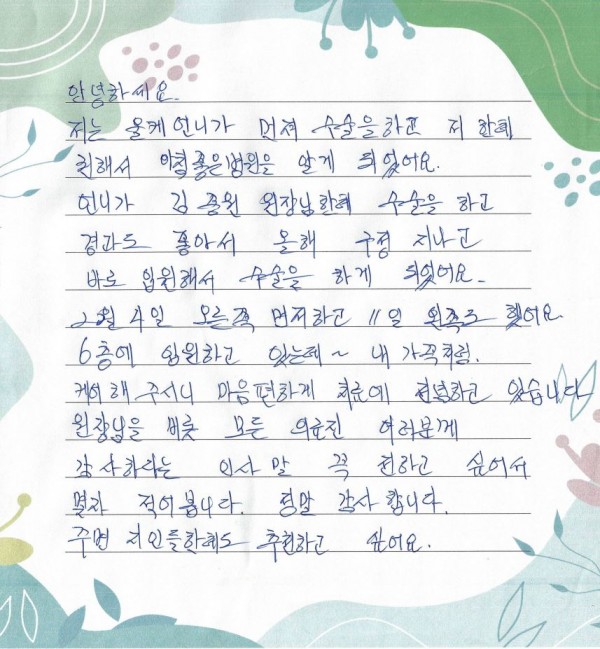 안녕하세요.
저는 올케언니가 먼저 수술을하고 저 한테
권해서 아침좋은병원을 알게 되었어요.
언니가 김 종원 원장님한테 수술을 하고
경과도 좋아서 올해 구정 지나고
바로 입원해서 수술을 하게 되었어요.
2월 4일 오른쪽 먼저하고 11일 왼쪽도 했어요
6층에 입원하고 있는데~ 내 가족처럼.
케어 해 주시니 마음편하게 치료에 전념하고 있습니다
원장님을 비롯 모든 의료진 여러분께
감사하다는 인사 말 꼭 전하고 싶어서
몇자 적어봅니다. 정말 감사 합니다.
주변 지인들한테도 추천하고 싶어요.